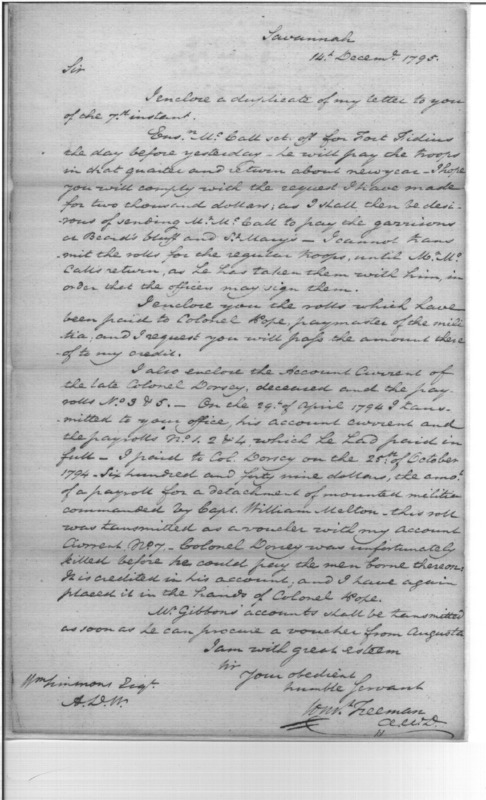 Savannah
14th Decemr. 1795.
Sir
I enclose a duplicate of my letter to you
of the 7th instant.
Ensn. Mc. Call set off for Fort Fidius
the day before yesterday - he will pay the troops
in that quarter and return about newyear - I hope
you will comply with the request I have made
for two thousand dollars; as I shall then be desi-
rous of sending Mr. Mc. Call to pay the garrisons
at Beard's bluff and St. Marys - I cannot trans
mit the rolls for the regular troops, until Mr. Mc.
Calls return, as he has taken them with him, in
order that the officers may sign them.
I enclose you the rolls which have
been paid to Colonel Pope, paymaster of the mili
tia, and I request you will pass the amount there
of to my credit.
I also enclose the Account Current of
the late Colonel Dorsey, deceased and the pay
rolls No. 3 & 5. - On the 29th of April 1794 I trans-
mitted to your office, his account current and
the payrolls No. 1. 2 & 4, which he had paid in
full - I paid to Col. Dorsey on the 28th of October
1794. Six hundred and forty nine dollars, the amot.
of a payroll for a detachment of mounted militia
commanded by Capt. William Melton - this roll
was transmitted as a voucher with my account
Current No. 7 - Colonel Dorsey was unfortunately
killed before he could pay the men borne thereon:
It is credited in his account, and I have again
placed it in the hands of Colonel Pope.
Mr. Gibbons' accounts shall be transmitted
as soon as he can procure a voucher from Augusta
I am with great esteem
Sir
Your obedient
humble Servant
Wm Simmons Esqr.
A.D.W.
Freeman